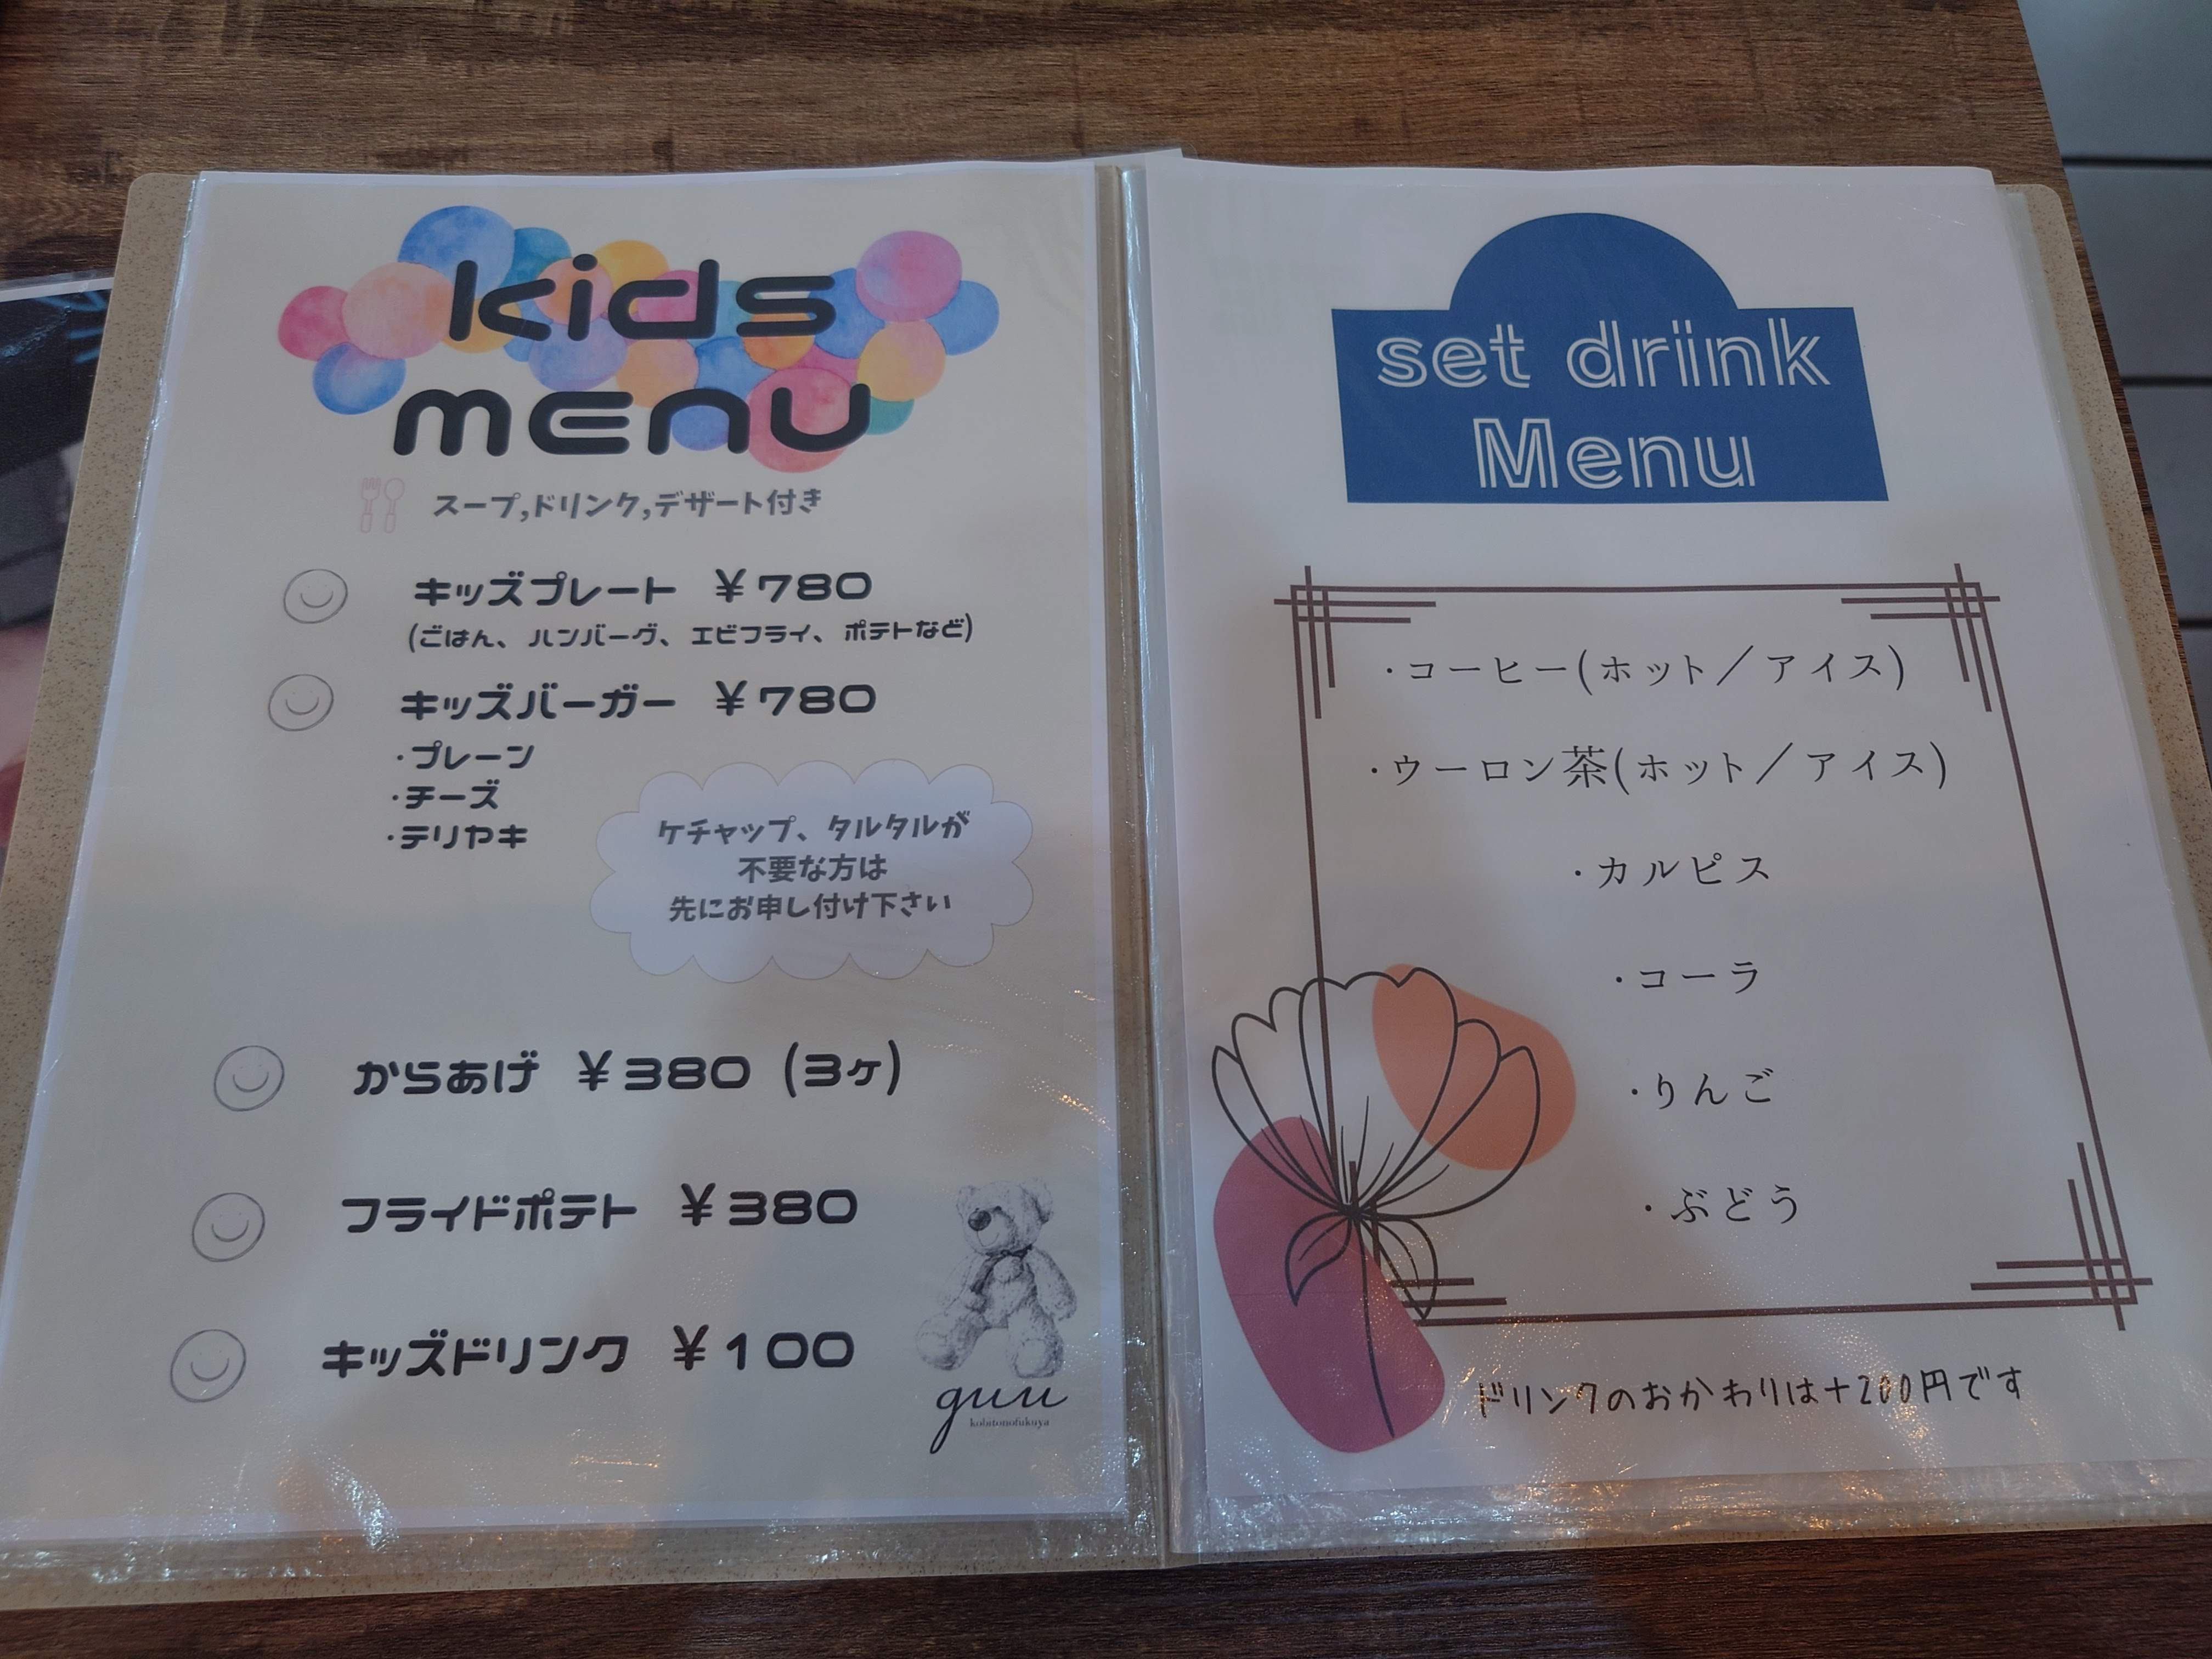 kids
menu
スープ,ドリンク,デザート付き
キッズプレート ￥780
(ごはん、ハンバーグ、エビフライ、ポテトなど)
キッズバーガー ￥780
・プレーン
・チーズ
・テリヤキ
ケチャップ、タルタルが
不要な方は
先にお申し付け下さい
からあげ ￥380 (3ヶ)
フライドポテト ￥380
キッズドリンク ￥100
guu
kobitonofukuya
set drink
Menu
・コーヒー(ホット／アイス)
・ウーロン茶(ホット／アイス)
・カルピス
・コーラ
・りんご
・ぶどう
ドリンクのおかわりは＋200円です